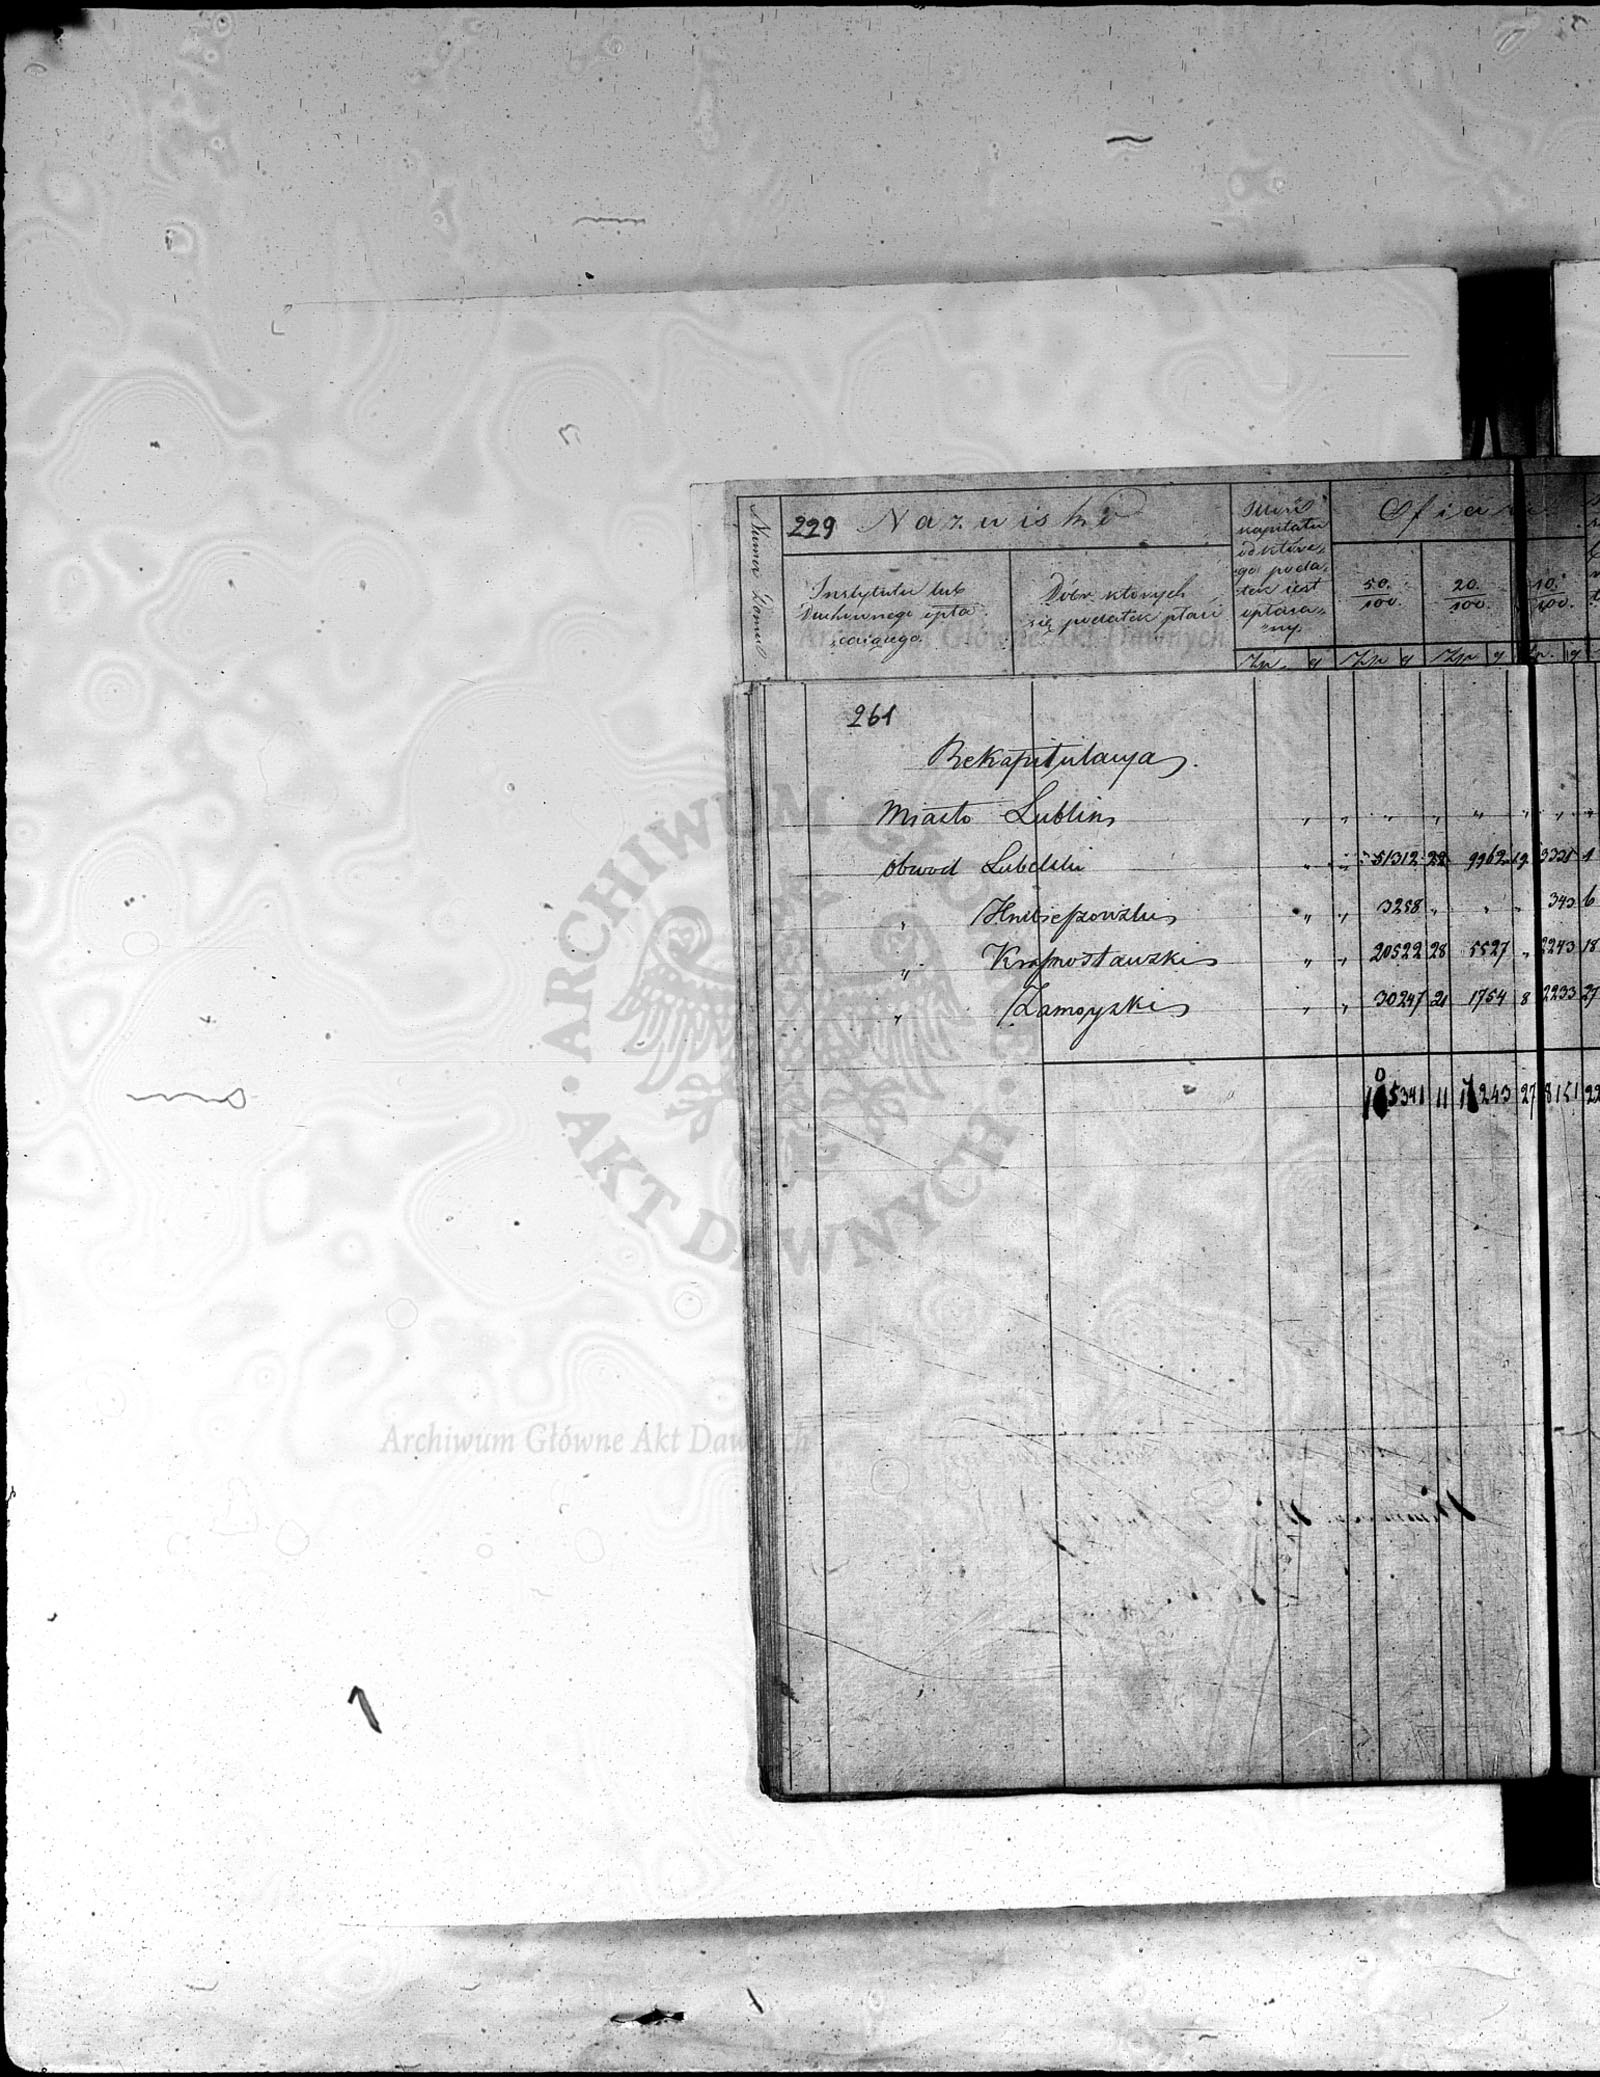 Numer Domu
229 Nazwisko
Instytutu lub
Duchownego opła
cającego
Dóbr których
się podatek płaci
kapitału
od które-
go poda-
tek jest
opłaca-
ny
Ofiara
50/100.
20/100.
10/100.
Złp g Złp g Złp g Złp. g
261
Rekapitulacya.
Miasto Lublin " " " " " " "
Obwod Lubelski " " 51312 22 9962 19 3331 1
" Hrubieszowski " " 3258 " " " 343 6
" Krasnostawski " " 20522 28 5527 " 2243 18
" Zamoyski " " 30247 21 1754 8 2233 27
105341 11 17243 27 8151 22
ARCHIWUM GŁÓWNE AKT DAWNYCH
Archiwum Główne Akt Dawnych
Archiwum Główne Akt Dawnych